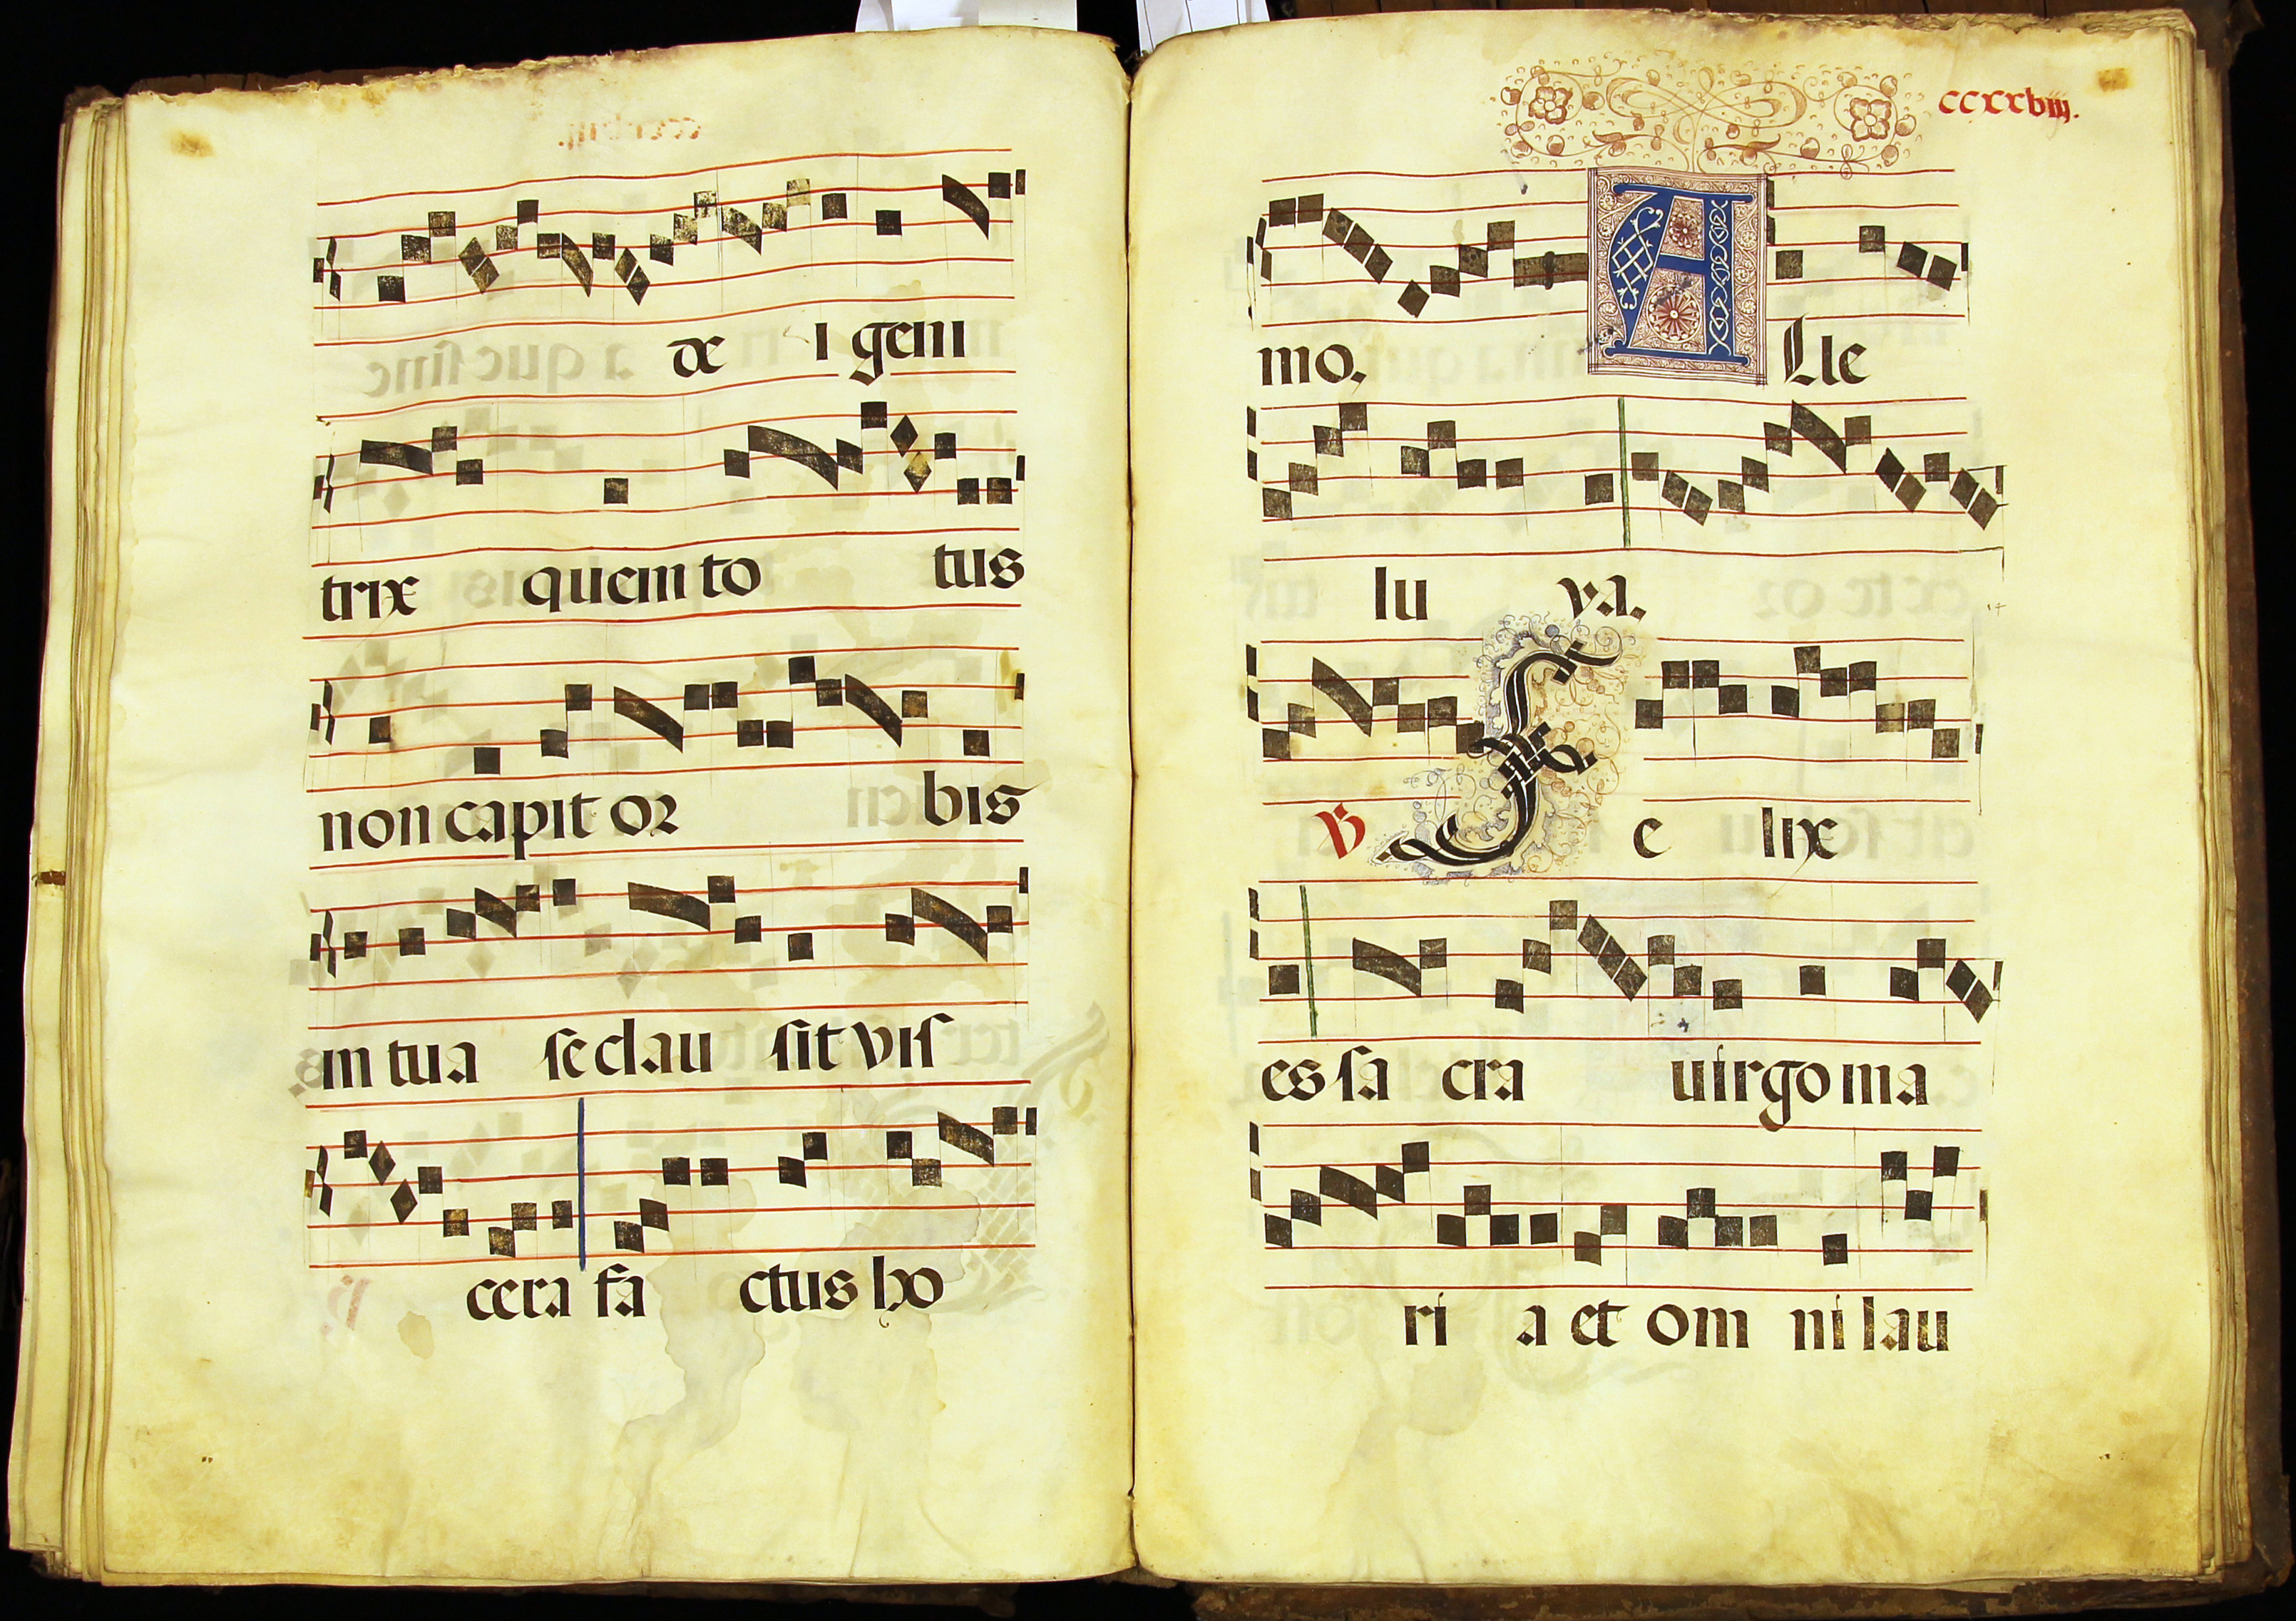 de i geni
trix quem to tus
non capit or bis
in tua se clau sit vis
cera fa ctus ho
ccxxbiij.
mo. A Lle
lu ya.
℣ F e lix
es sa cra uirgo ma
ri a et om ni lau